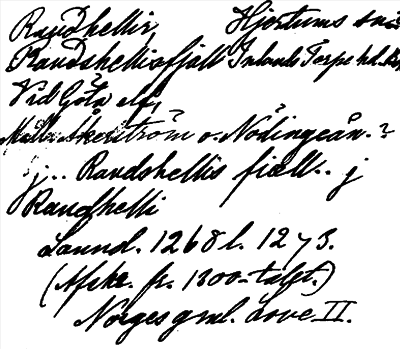 Raudhellir, Hjortums
Raudshellisfjäll Inlands Torpe hd.
Vid Göta elf,
Mella Skerström o. Nödingeån. ?
j.. Raudshellis fiæll.. j
Raudhelli
Laund. 1268 l. 1273.
(Afskr. fr. 1300-talet.)
Norges gml. Love II.